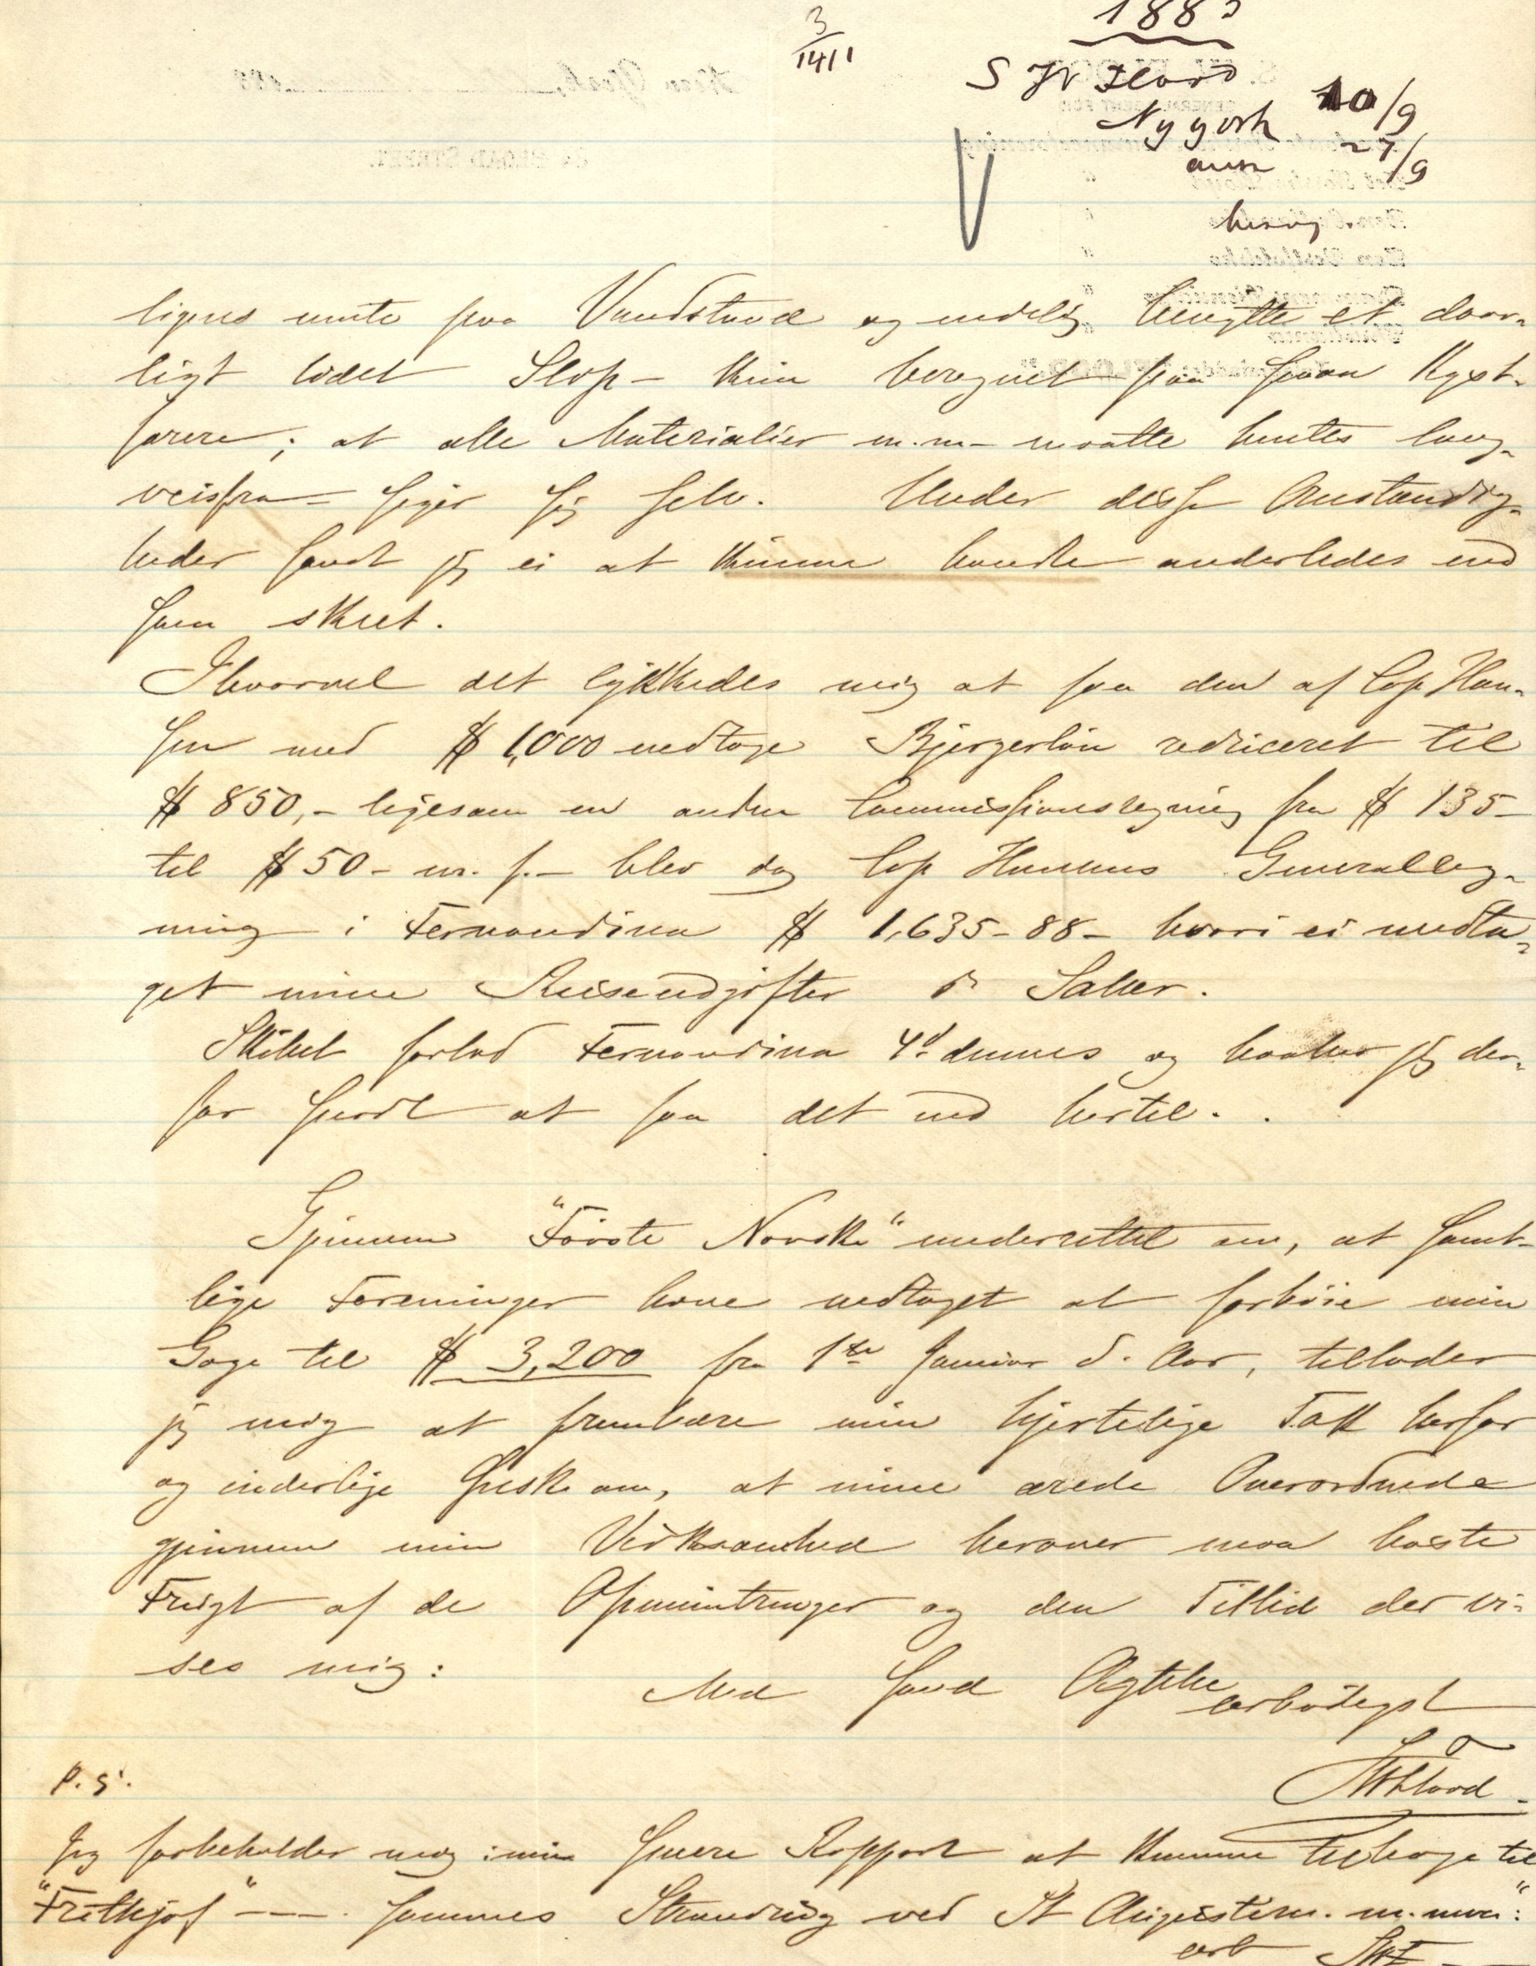 3/1411
1883
S W Flood
Nyyork 10/9
ank 27/9
besv.
ligens vente paa Vandstand og endelig benytte et daar-
ligt lodet Slop - kun beregnet paa smaa Kyst-
farere; at alle Materialier m.m. maatte hentes lang-
veisfra siger sig selv. Under disse Omstændig-
heder fandt jeg ei at kunne handle anderledes end
som skeet.
Ihvorvel det lykkedes mig at faa den af Cap Han-
sen med $ 1,000 vedtage Bjergerløn reduceret til
$ 850,- ligesom en anden Commissionsregning fra $ 135-
til $ 50- m.f.- blev dog Cap Hansens Generalreg-
ning i Fernandina $ 1,635-88- hvori ei medta-
get mine Reiseudgifter & Salær.
Skibet forlod Fernandina 4d dennes og haaber jeg der-
for snart at faa det ind hertil.
Gjennem "Første Norske" underrettet om, at samt-
lige Foreninger have vedtaget at forhøie min
Gage til $ 3,200 fra 1ste Januar d. Aar, tillader
jeg mig at frembære min hjertelige Tak herfor
og inderlige Ønske om, at mine ærede Overordnede
gjennem min Virksomhed herover maa høste
Frugt af de Opmuntringer og den Tillid der vi-
ses mig:
Med sand Agtelse
ærbødigst
SWFlood
P.S.
Jeg forbeholder mig i min senere Rapport at kunne tilbage til
"Frithjof" --- sammes Stranding ved St Augustine. m. mere:
ærb SWF